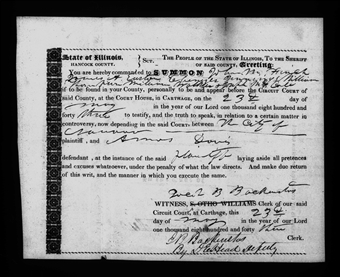 State of Illinois,
HANCOCK COUNTY.
Sct.
THE PEOPLE OF THE STATE OF ILLINOIS, TO THE SHERIFF
OF SAID COUNTY, Greeting:
You are hereby commanded to SUMMON John M.
James A.
William
if to be found in your County, personally to be and appear before the CIRCUIT COURT of
said County, at the COURT HOUSE, in CARTHAGE, on the 23d day of
May in the year of our Lord one thousand eight hundred and
forty to testify, and the truth to speak, in relation to a certain matter in
controversy, now depending in the said Court: between The City of
Nauvoo
plaintiff, and Amos Davis
defendant, at the instance of the said laying aside all pretences
and excuses whatsoever, under the penalty of what the law directs. And make due return
of this writ, and the manner in which you execute the same.
Jacob B Backenstos
WITNESS, S. OTHO WILLIAMS Clerk of our said
Circuit Court, at Carthage, this 23d
day of May in the year of our Lord
one thousand eight hundred and forty
Backenstos Clerk.
By Deputy